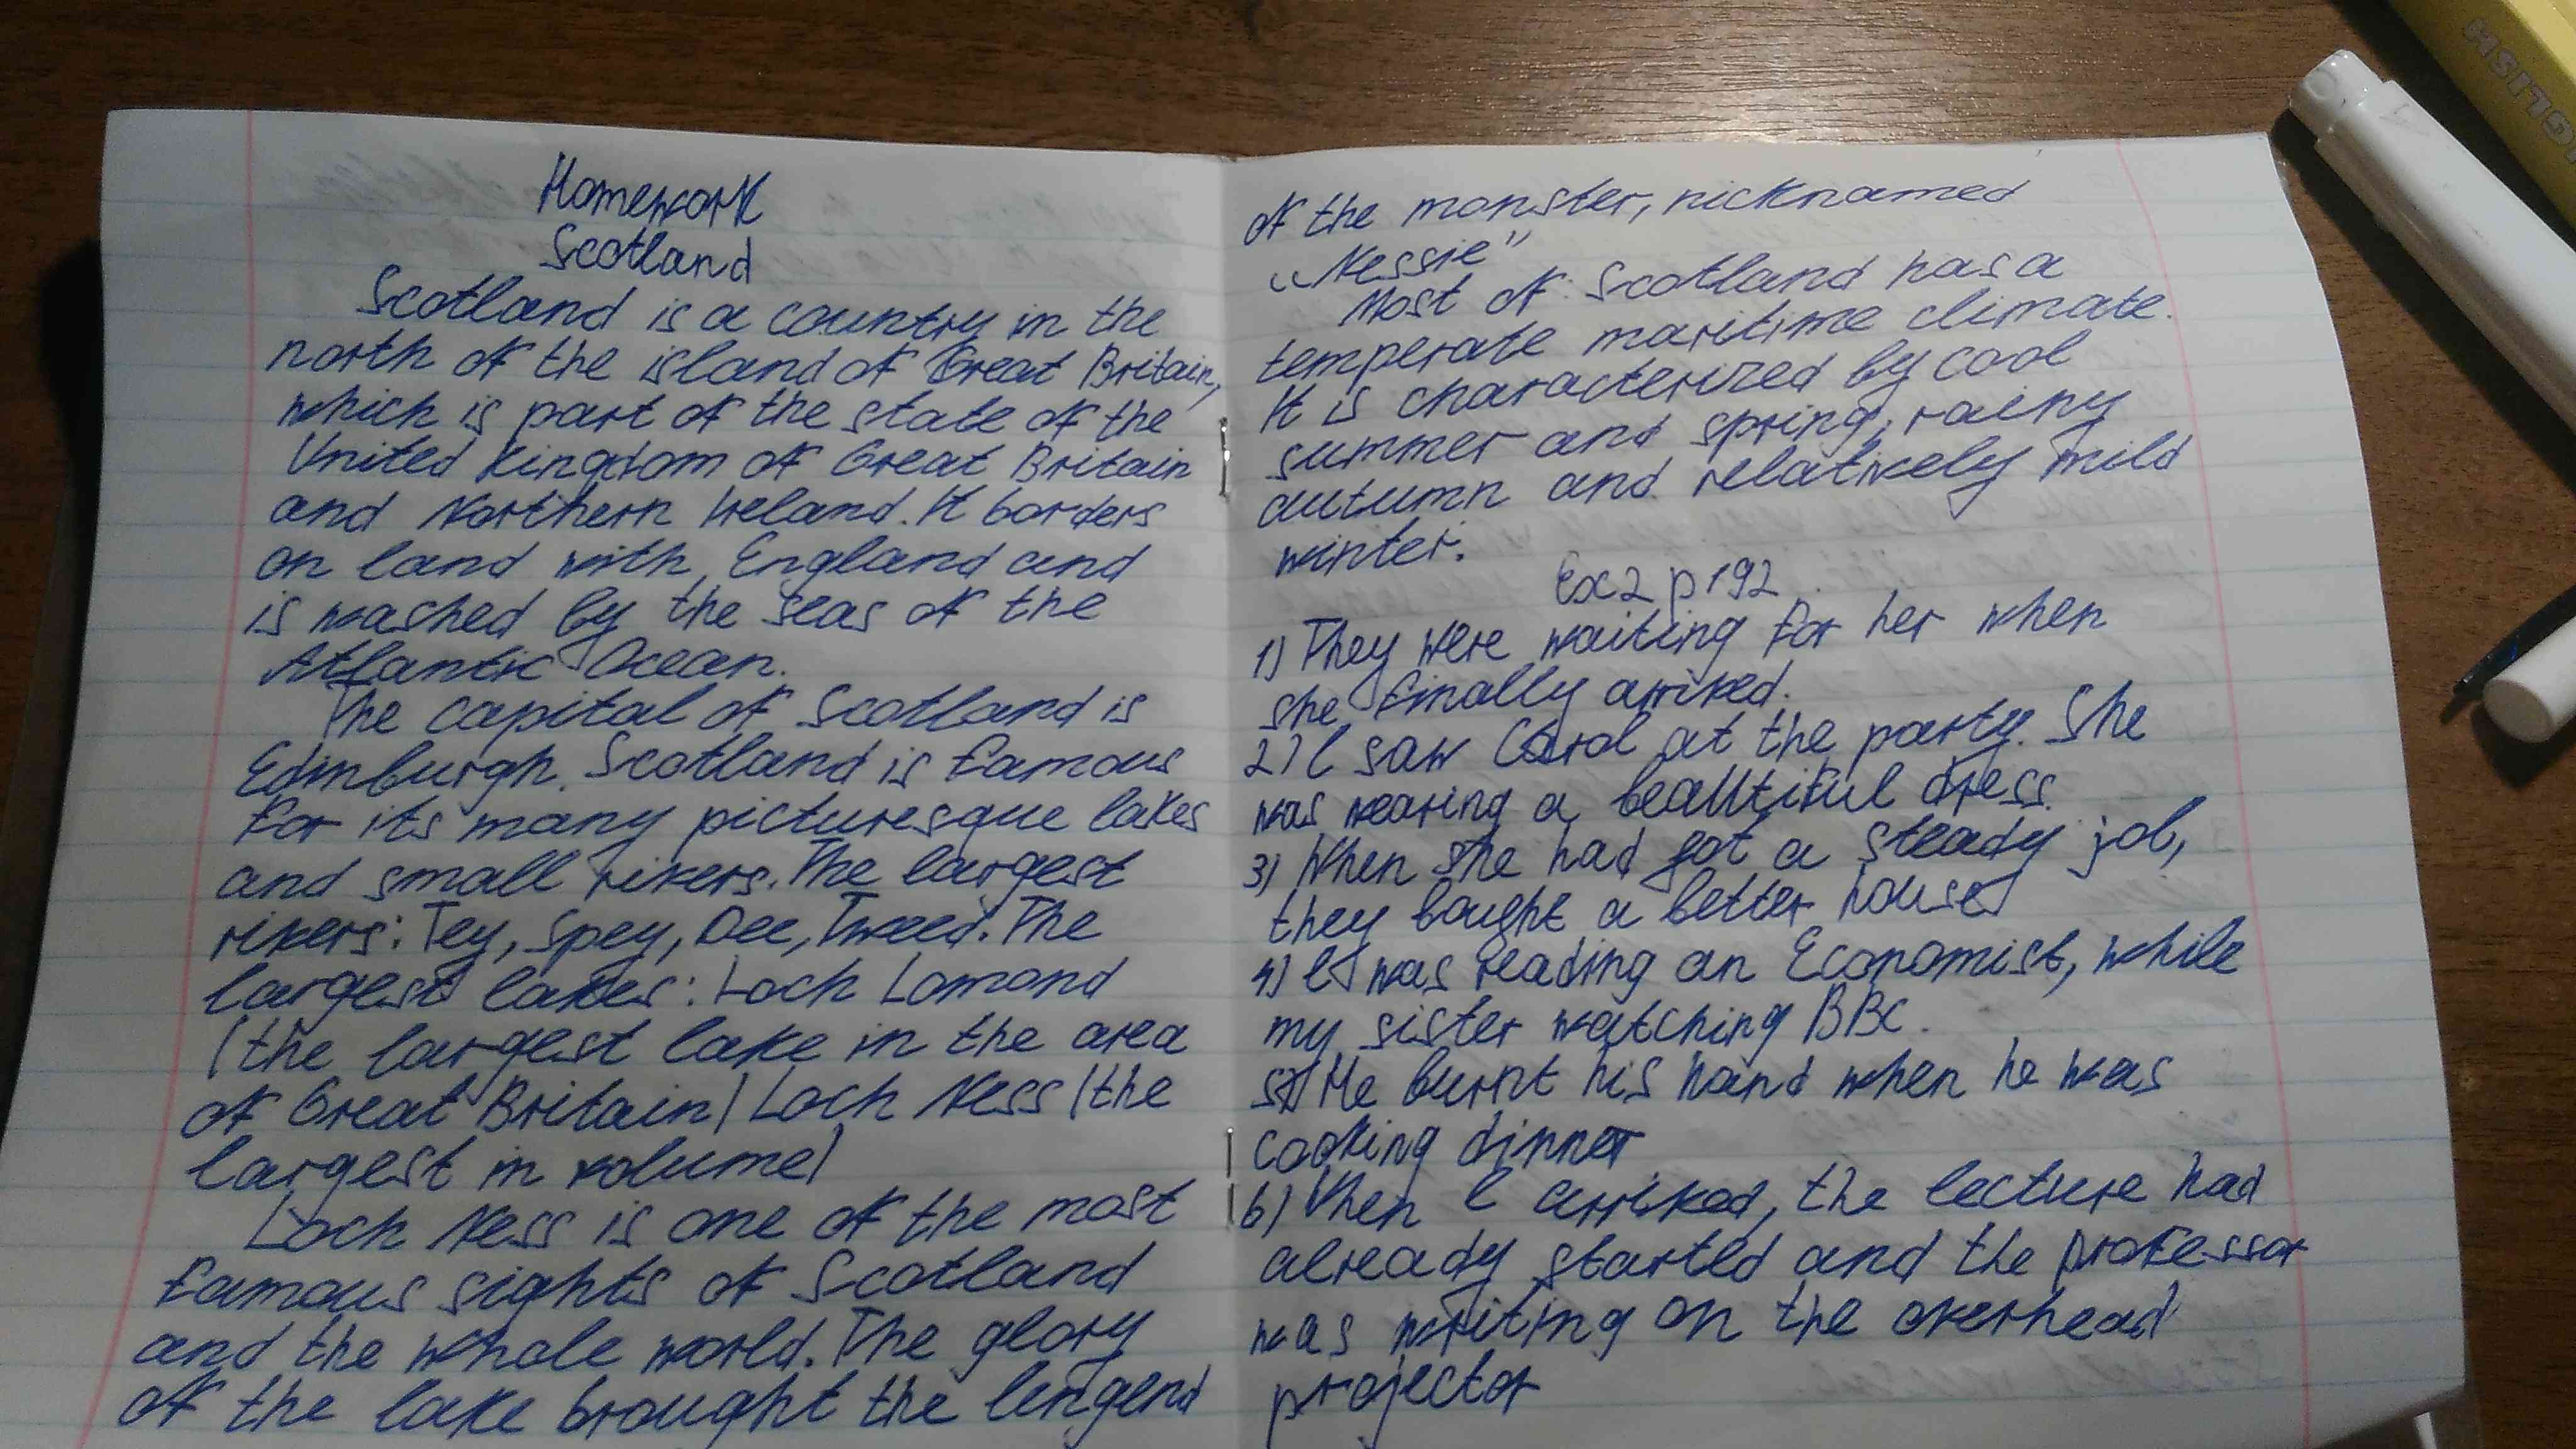 Homework
Scotland
Scotland is a country in the
north of the island of Great Britain,
which is part of the state of the
United Kingdom of Great Britain
and Northern Ireland. It borders
on land with England and
is washed by the seas of the
Atlantic Ocean.
The capital of Scotland is
Edinburgh. Scotland is famous
for its many picturesque lakes
and small rivers. The largest
rivers: Tey, Spey, Dee, Tweed. The
largest lakes: Loch Lomond
(the largest lake in the area
of Great Britain) Loch Ness (the
largest in volume)
Loch Ness is one of the most
famous sights of Scotland
and the whole world. The glory
of the lake brought the lengend
of the monster, nicknamed
„Nessie"
Most of Scotland has a
temperate maritime climate.
It is characterized by cool
summer and spring, rainy
autumn and relatively mild
winter.
Ex2 p192
1) They were waiting for her when
she finally arrived.
2) I saw Carol at the party. She
was wearing a beautiful dress.
3) When she had got a steady job,
they bought a better house
4) I was reading an Economist, while
my sister watching BBC.
5) He burnt his hand when he was
cooking dinner
6) When I arrived, the lecture had
already started and the professor
was writing on the overhead
projector
ENGLISH